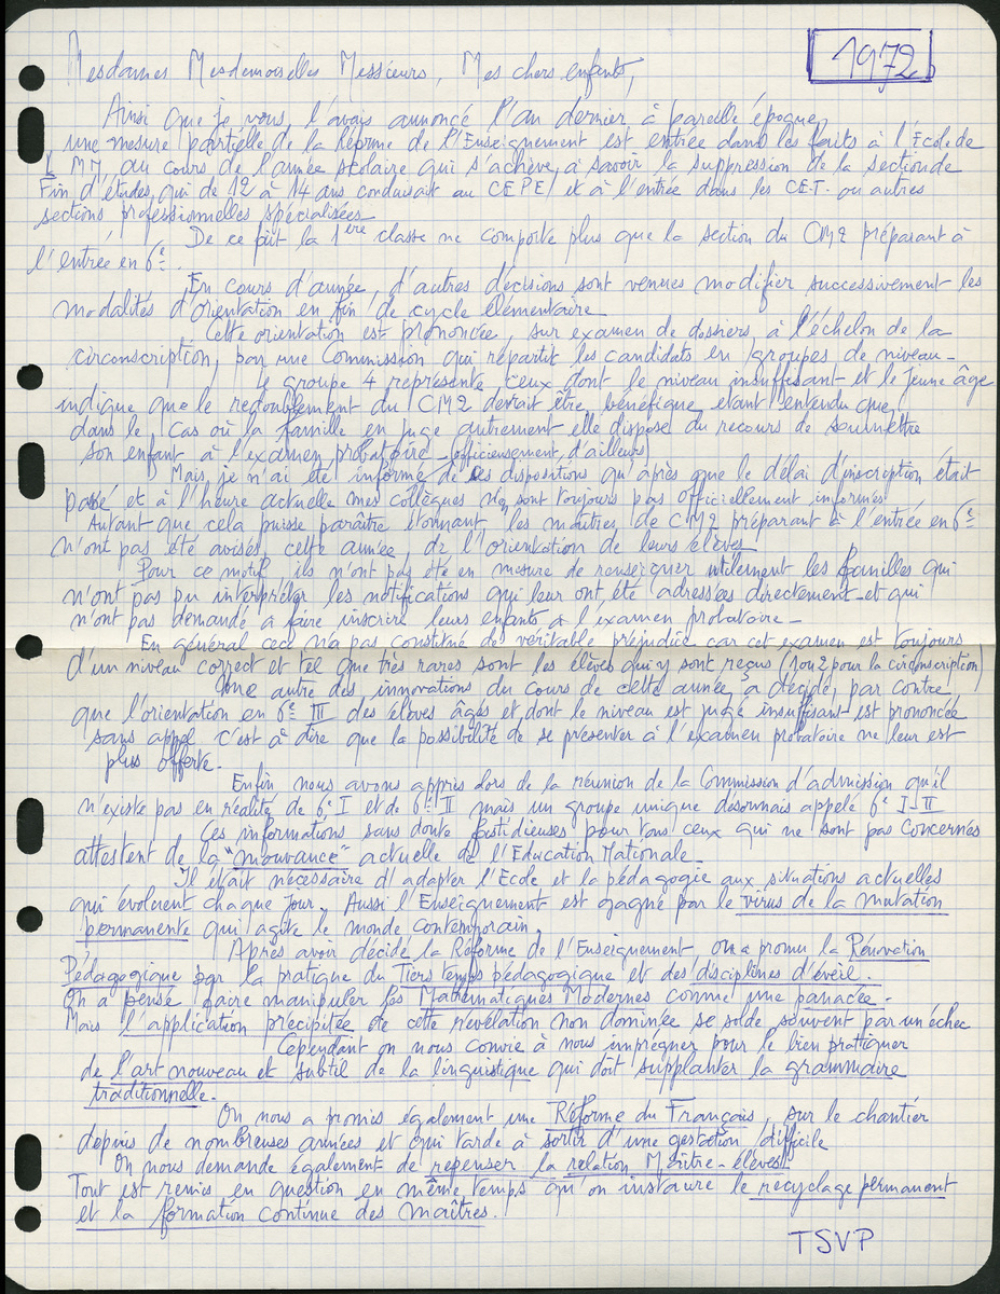 1972
Mesdames Mesdemoiselles Messieurs, Mes chers enfants,
Ainsi que je vous l'avais annoncé l'an dernier à pareille époque,
une mesure partielle de la Réforme de l'Enseignement est entrée dans les faits à l'Ecole de
au cours de l'année scolaire qui s'achève, à savoir la suppression de la section de
Fin d'études, qui de 12 à 14 ans conduisait au CEPE et à l'entrée dans les CET. ou autres
sections professionnelles spécialisées
De ce fait la 1ère classe ne comporte plus que la section du CM2 préparant à
l'entrée en 6e.
En cours d'année, d'autres décisions sont venues modifier successivement les
modalités d'orientation en fin de cycle élémentaire
Cette orientation est prononcée, sur examen de dossiers, à l'échelon de la
circonscription, par une Commission qui répartit les candidats en groupes de niveau -
Le groupe 4 représente ceux dont le niveau insuffisant et le jeune âge
indique que le redoublement du CM2 devrait être bénéfique, étant entendu que,
dans le cas où la famille en juge autrement elle dispose du recours de soumettre
son enfant à l'examen probatoire - (officieusement, d'ailleurs)
Mais je n'ai été informé de ces dispositions qu'après que le délai d'inscription était
passé et à l'heure actuelle mes collègues n'en sont toujours pas officiellement informés
Autant que cela puisse paraître étonnant, les maîtres de CM2 préparant à l'entrée en 6e
n'ont pas été avisés, cette année, de l'orientation de leurs élèves
Pour ce motif, ils n'ont pas été en mesure de renseigner utilement les familles qui
n'ont pas pu interpréter les notifications qui leur ont été adressées directement et qui
n'ont pas demandé à faire inscrire leurs enfants à l'examen probatoire -
En général ceci n'a pas constitué de véritable préjudice car cet examen est toujours
d'un niveau correct et tel que très rares sont les élèves qui y sont reçus (1 ou 2 pour la circonscription)
Une autre des innovations du cours de cette année, a décidé, par contre,
que l'orientation en 6e III des élèves âgés et dont le niveau est jugé insuffisant est prononcée
sans appel c'est à dire que la possibilité de se présenter à l'examen probatoire ne leur est
plus offerte.
Enfin nous avons appris lors de la réunion de la Commission d'admission qu'il
n'existe pas en réalité de 6e I et de 6e II mais un groupe unique désormais appelé 6e I-II
Ces informations sans doute fastidieuses pour tous ceux qui ne sont pas concernés
attestent de la "mouvance" actuelle de l'Education Nationale -
Il était nécessaire d'adapter l'Ecole et la pédagogie aux situations actuelles
qui évoluent chaque jour. Aussi l'Enseignement est gagné par le virus de la mutation
permanente qui agite le monde contemporain.
Après avoir décidé la Réforme de l'Enseignement, on a promu la Rénovation
Pédagogique par la pratique du Tiers temps pédagogique et des disciplines d'éveil.
On a pensé faire manipuler les Mathématiques Modernes comme une panacée -
Mais l'application précipitée de cette révélation non dominée se solde souvent par un échec
Cependant on nous convie à nous imprégner pour le bien pratiquer
de l'art nouveau et subtil de la linguistique qui doit supplanter la grammaire
traditionnelle.
On nous a promis également une Réforme du Français, sur le chantier
depuis de nombreuses années et qui tarde à sortir d'une gestation difficile
On nous demande également de repenser la relation Maître-élèves
Tout est remis en question en même temps qu'on instaure le recyclage permanent
et la formation continue des maîtres.
TSVP